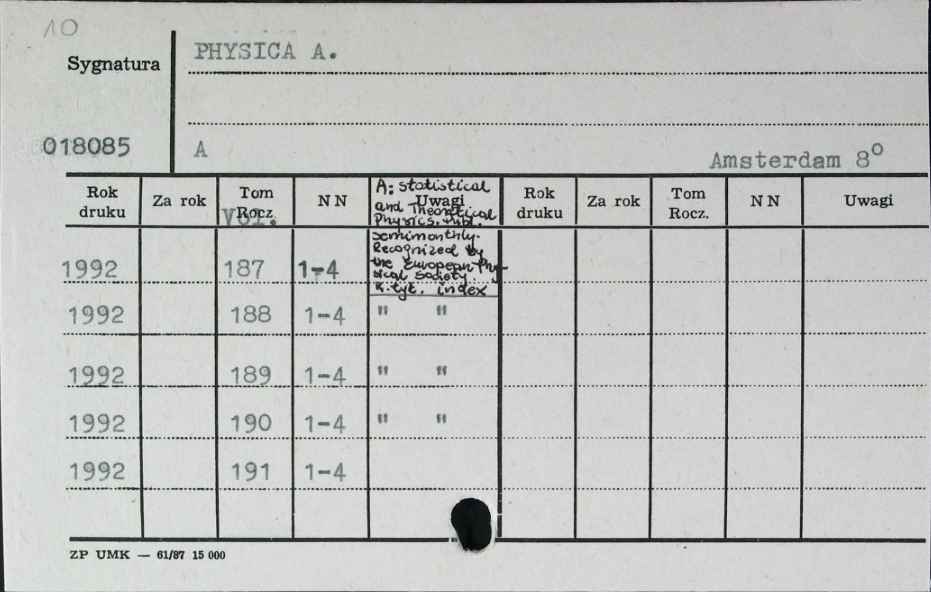 10
PHYSICA A.
Sygnatura
018085
A
Amsterdam 8º
Rok druku
Za rok
Tom Rocz.
Vol.
NN
Uwagi
Rok druku
Za rok
Tom Rocz.
NN
Uwagi
A: statistical
and Theoretical
Physics. Publ.
semimonthly.
Recognized by
the European Phy-
sical Society.
K.tyt. index
1992 187 1-4
1992 188 1-4 " "
1992 189 1-4 " "
1992 190 1-4 " "
1992 191 1-4
ZP UMK — 61/87 15 000